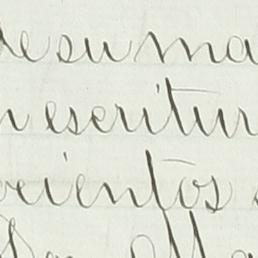 de su ma
n escritur
cientos